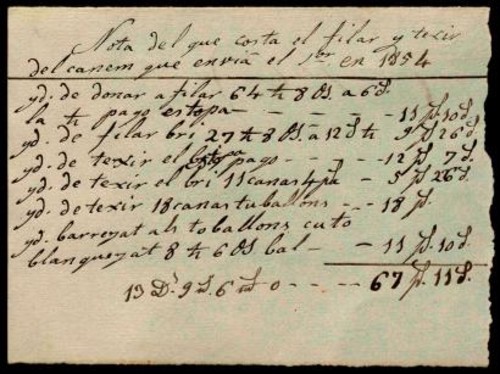 Nota del que costa el filar y texir
del canem que enviá el Sor. en 1854
yd. de donar a filar 64 ħ 8 OS. a 6 S.
la ħ pago estopa - - - - - 11 p. 10 S.
yd. de filar bri 27 ħ 8 OS. a 12 S ħ 9 p. 26 S.
yd. de texir el pago - - - - 12 p. 7 S.
yd. de texir el bri 11 canas 4 pa - 5 p. 26 S.
yd. de texir 18 canas tuballons - - 18 p.
yd. barrejat als toballons cuto
blanquejat 8 ħ 6 OS bal - - 11 p. 10 S.
13 D. 9 S. 6 0 - - - - 67 p. 11 S.